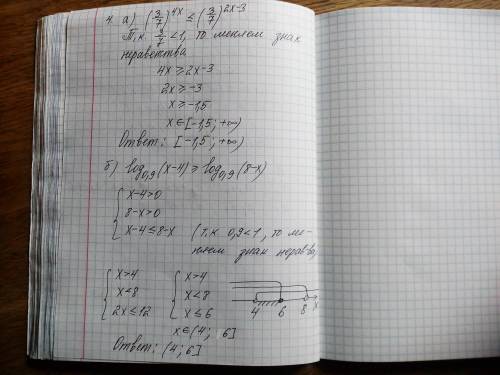 4. а) (3/7)^4x ≤ (3/7)^2x-3
Т.к. 3/7 < 1, то меняем знак
неравества
4x ≥ 2x-3
2x ≥ -3
x ≥ -1,5
x ∈ [-1,5; +∞)
Ответ: [-1,5; +∞)
б) log0,9 (x-4) ≥ log0,9 (8-x)
{ x-4>0
8-x>0
x-4≤8-x (т.к. 0,9<1, то ме-
няем знак нерав-ва)
{ x>4 { x>4
x<8 x<8
2x≤12 x≤6
4 6 8 x
x∈(4; 6]
Ответ: (4; 6]